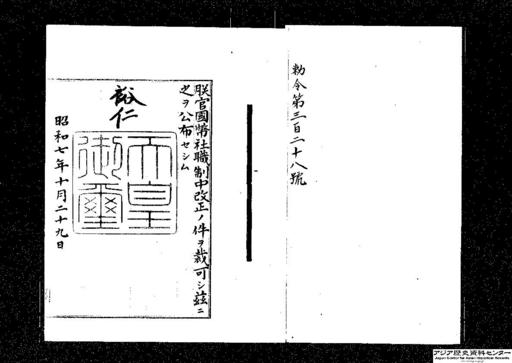 勅令第三百二十八號
朕官國幣社職制中改正ノ件ヲ裁可シ茲ニ
之ヲ公布セシム
裕仁
天皇御璽
昭和七年十月二十九日
アジア歴史資料センター
Japan Center for Asian Historical Records